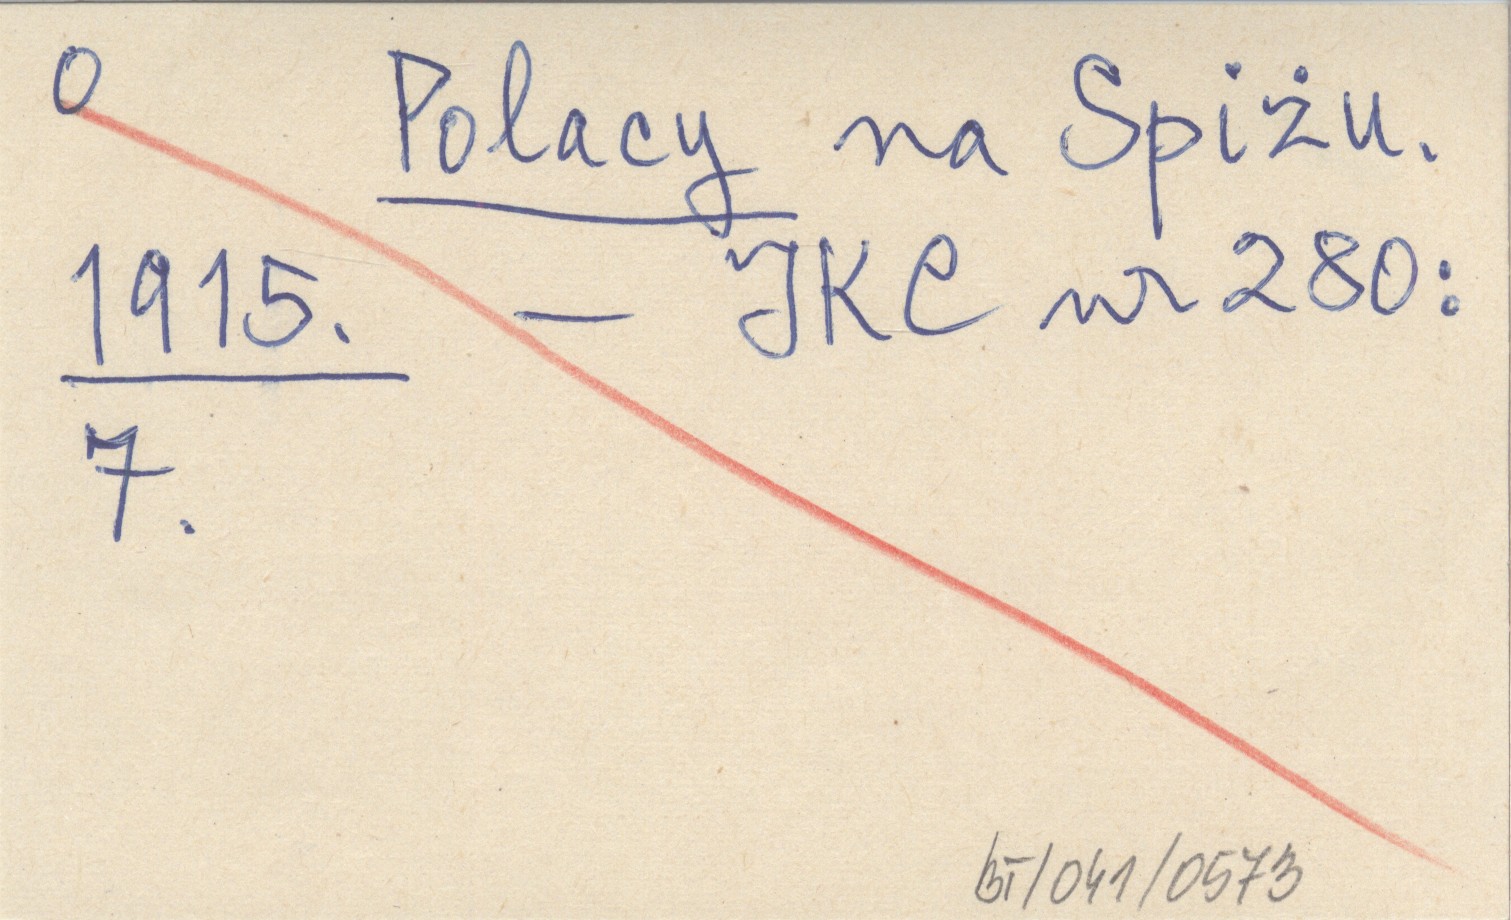 O Polacy na Spiżu.
1915. — JKC nr 280:
7.
BT/041/0573